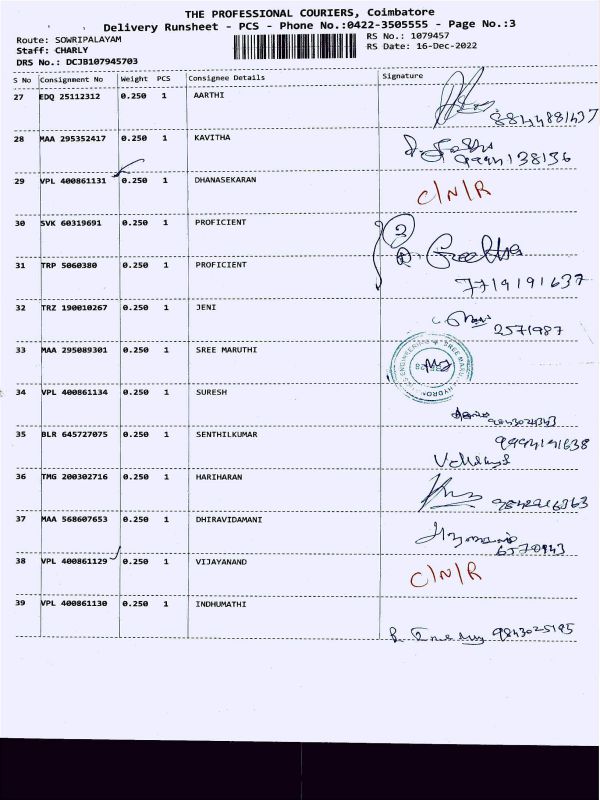 THE PROFESSIONAL COURIERS, Coimbatore
Delivery Runsheet - PCS - Phone No.:0422-3505555 - Page No.:3
Route: SOWRIPALAYAM
RS No.: 1079457
Staff: CHARLY
RS Date: 16-Dec-2022
DRS No.: DCJB107945703
S No Consignment No Weight PCS Consignee Details Signature
27 EDQ 25112312 0.250 1 AARTHI
28 MAA 295352417 0.250 1 KAVITHA
9994138136
29 VPL 400861131 0.250 1 DHANASEKARAN C/N/R
30 SVK 60319691 0.250 1 PROFICIENT 2
31 TRP 5060380 0.250 1 PROFICIENT
7719191637
32 TRZ 190010267 0.250 1 JENI
2571987
33 MAA 295089301 0.250 1 SREE MARUTHI
34 VPL 400861134 0.250 1 SURESH
35 BLR 645727075 0.250 1 SENTHILKUMAR
9994191638
36 TMG 200302716 0.250 1 HARIHARAN
37 MAA 568607653 0.250 1 DHIRAVIDAMANI
6570943
38 VPL 400861129 0.250 1 VIJAYANAND C/N/R
39 VPL 400861130 0.250 1 INDHUMATHI
9843025195